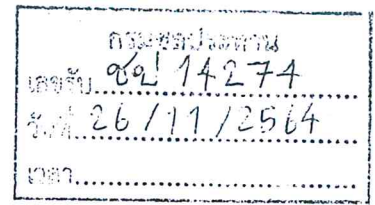 กรมชลประทาน
เลขรับ ชป 14274
วันที่ 26/11/2564
เวลา